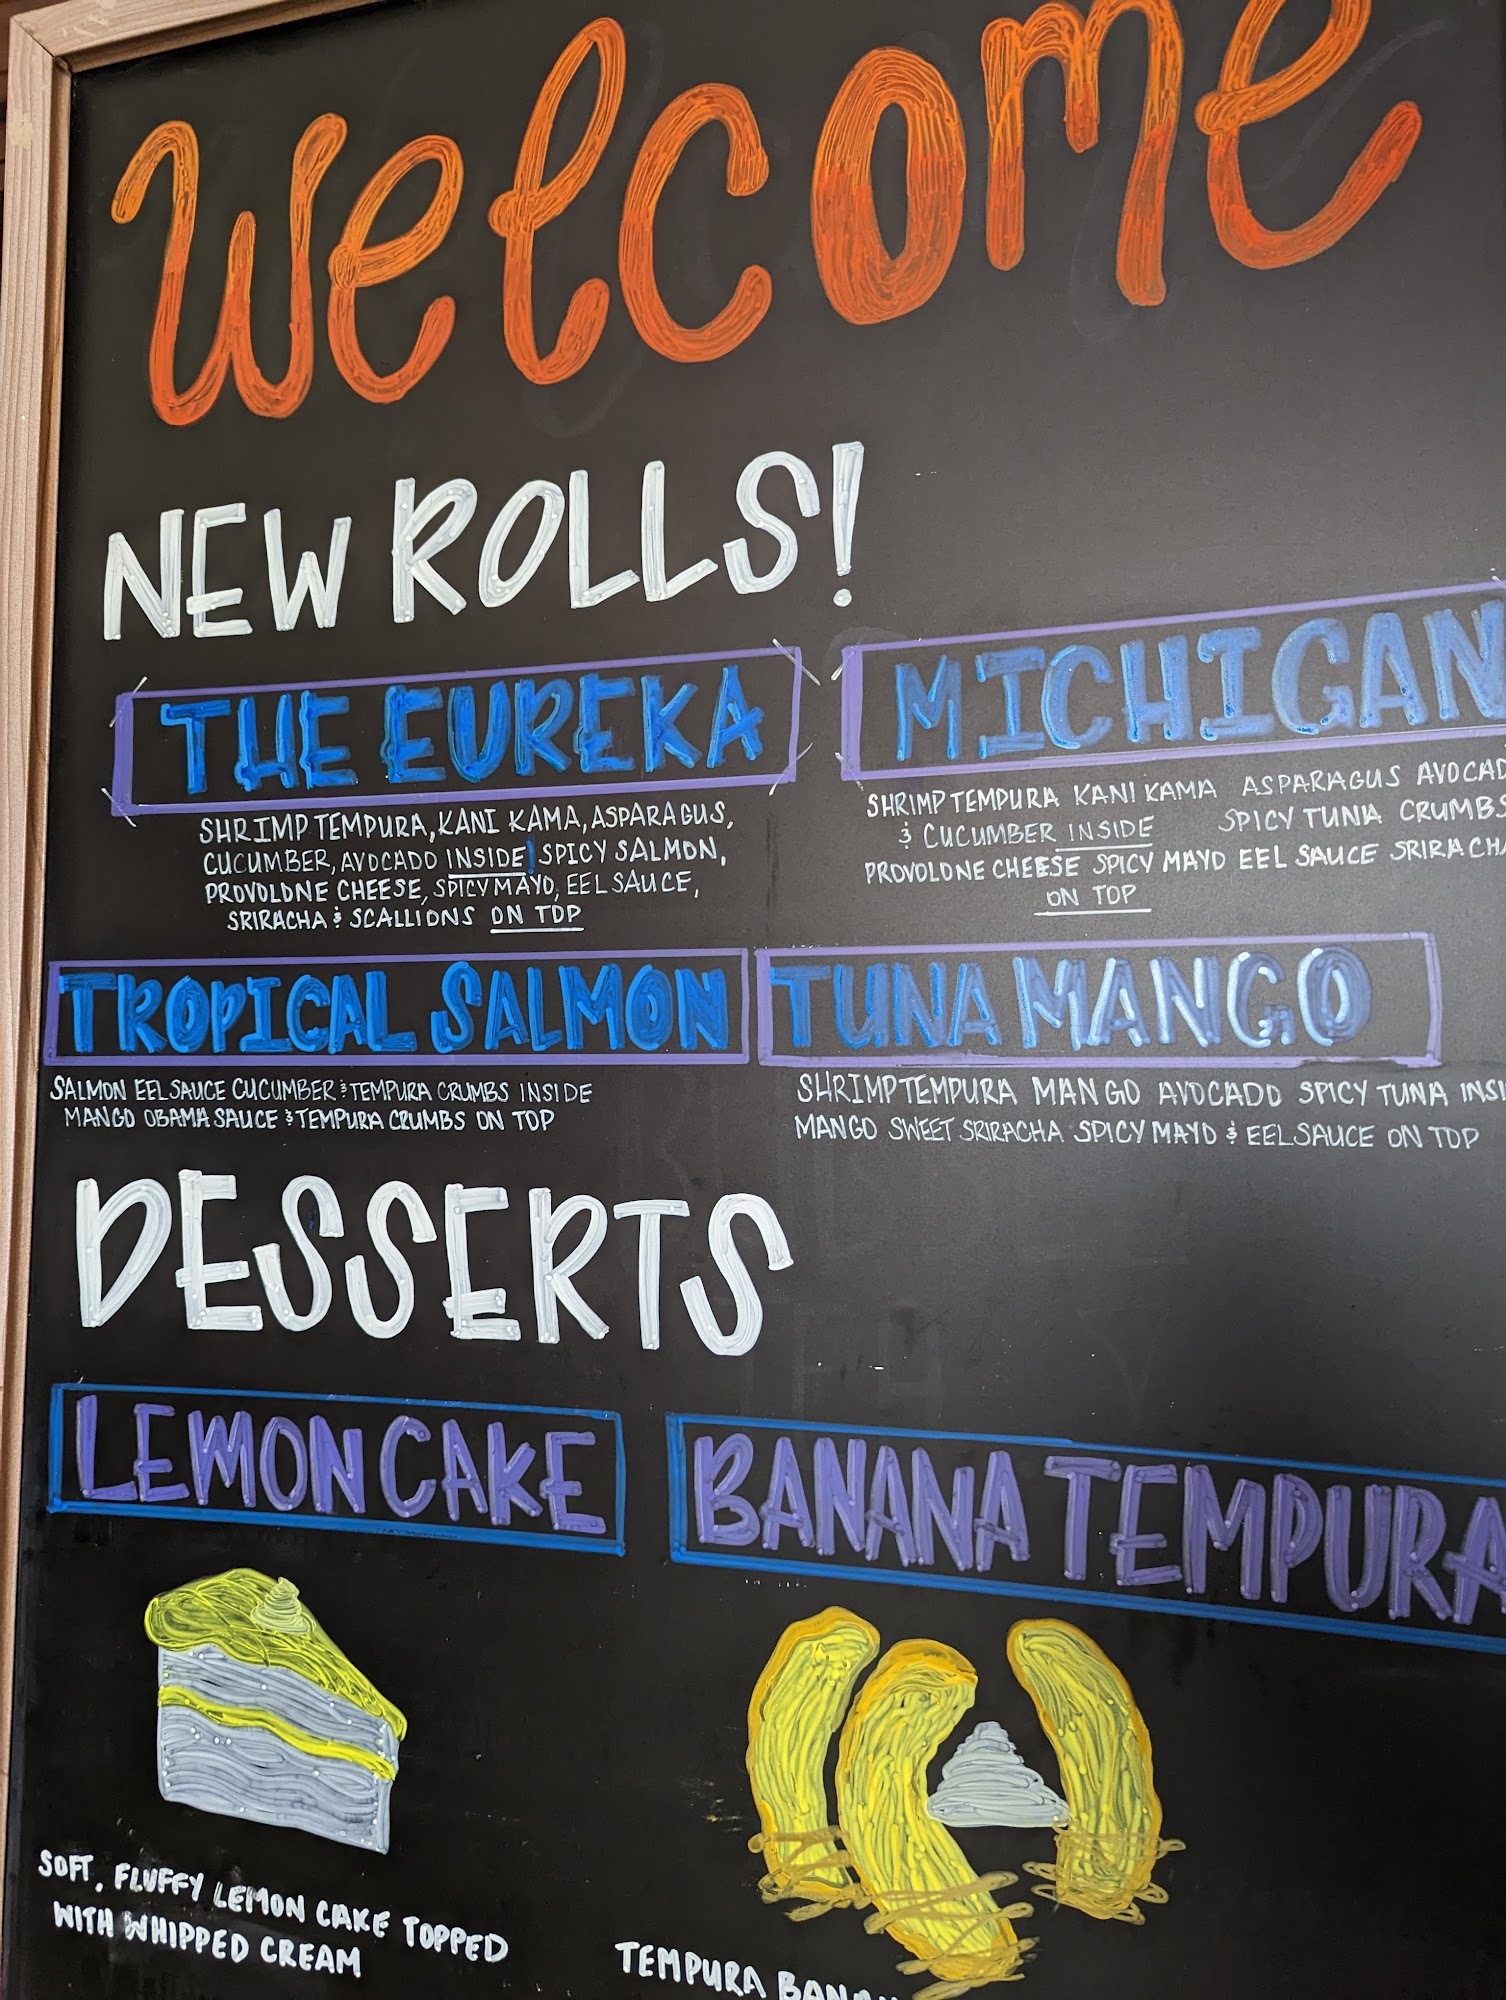 Welcome
NEW ROLLS!
THE EUREKA
SHRIMP TEMPURA, KANI KAMA, ASPARAGUS,
CUCUMBER, AVOCADO INSIDE! SPICY SALMON,
PROVOLONE CHEESE, SPICY MAYO, EEL SAUCE,
SRIRACHA & SCALLIONS ON TOP
MICHIGAN
SHRIMP TEMPURA KANI KAMA ASPARAGUS AVOCAD
& CUCUMBER INSIDE SPICY TUNA CRUMBS
PROVOLONE CHEESE SPICY MAYO EEL SAUCE SRIRACHA
ON TOP
TROPICAL SALMON
SALMON EEL SAUCE CUCUMBER & TEMPURA CRUMBS INSIDE
MANGO OBAMA SAUCE & TEMPURA CRUMBS ON TOP
TUNA MANGO
SHRIMP TEMPURA MANGO AVOCADO SPICY TUNA INSI
MANGO SWEET SRIRACHA SPICY MAYO & EEL SAUCE ON TOP
DESSERTS
LEMON CAKE
BANANA TEMPURA
SOFT, FLUFFY LEMON CAKE TOPPED
WITH WHIPPED CREAM
TEMPURA BANAN